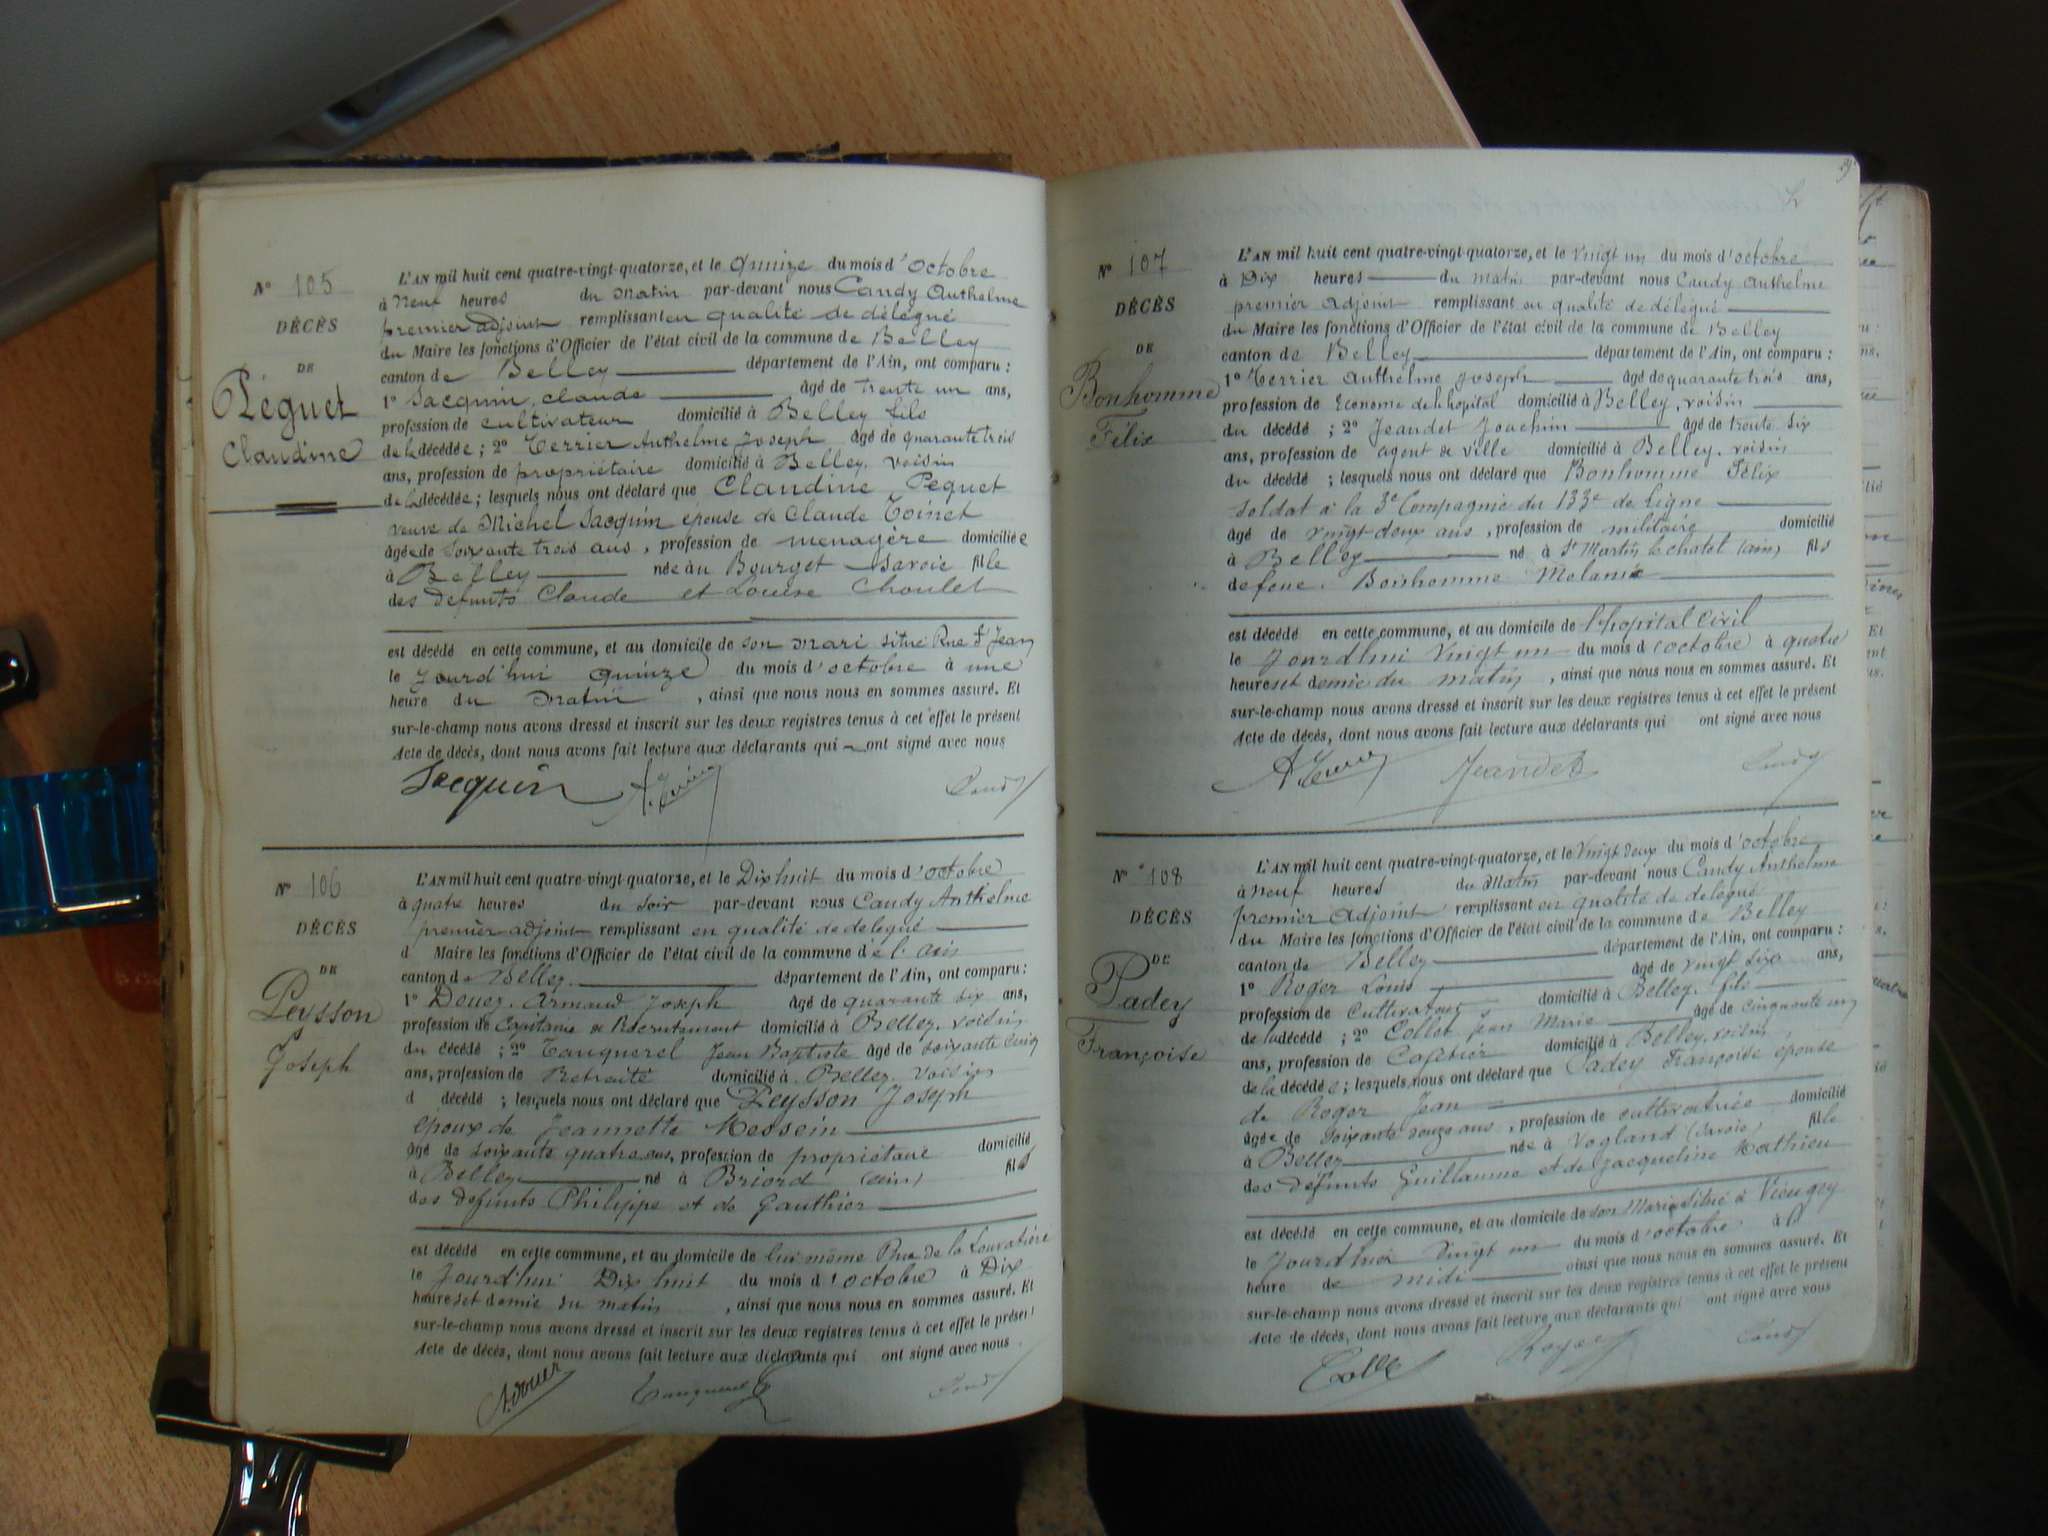 N° 105
DÉCÈS
DE
Péguet
Claudine
L'AN mil huit cent quatre-vingt-quatorze, et le Quinze du mois d'octobre
à Neuf heures du Matin par-devant nous Candy Anthelme
premier adjoint remplissant en qualité de délégué
du Maire les fonctions d'Officier de l'état civil de la commune de Belley
canton de Belley département de l'Ain, ont comparu :
1° Jacquin Claude âgé de trente un ans,
profession de cultivateur domicilié à Belley fils
de la décédée ; 2° Terrier Anthelme Joseph âgé de quarante trois
ans, profession de propriétaire domicilié à Belley. voisin
de la décédée ; lesquels nous ont déclaré que Claudine Peguet
veuve de Michel Jacquin épouse de Claude Toinet
âgée de soixante trois ans, profession de menagère domiciliée
à Belley née au Bourget Savoie fille
des defunts Claude et Louise Choulet
est décédé en cette commune, et au domicile de son mari situé Rue St Jean
le jourd'hui quinze du mois d'octobre à une
heure du matin, ainsi que nous nous en sommes assuré. Et
sur-le-champ nous avons dressé et inscrit sur les deux registres tenus à cet effet le présent
Acte de décès, dont nous avons fait lecture aux déclarants qui ont signé avec nous
Jacquin A. Terrier Candy
N° 106
DÉCÈS
DE
Peysson
Joseph
L'AN mil huit cent quatre-vingt-quatorze, et le Dix huit du mois d'octobre
à quatre heures du soir par-devant nous Candy Anthelme
premier adjoint remplissant en qualité de délegué
d Maire les fonctions d'Officier de l'état civil de la commune de l'ain
canton de Belley département de l'Ain, ont comparu :
1° Douez Armand Joseph âgé de quarante six ans,
profession de Capitaine de Recrutement domicilié à Belley. voisin
du décédé ; 2° Tanquerel Jean Baptiste âgé de soixante cinq
ans, profession de Retraité domicilié à Belley. voisin
d décédé ; lesquels nous ont déclaré que Peysson Joseph
époux de Jeannette Messein
âgé de soixante quatre ans, profession de propriétaire domicilié
à Belley né à Briord (ain) fils
des defunts Philippe et de Gauthier
est décédé en cette commune, et au domicile de lui même Rue de la Louvatière
le Jourd'hui Dix huit du mois d'octobre à Dix
heures et demie du matin, ainsi que nous nous en sommes assuré. Et
sur-le-champ nous avons dressé et inscrit sur les deux registres tenus à cet effet le présent
Acte de décès, dont nous avons fait lecture aux déclarants qui ont signé avec nous.
Tanquerel Candy
N° 107
DÉCÈS
DE
Bonhomme
Félix
L'AN mil huit cent quatre-vingt-quatorze, et le vingt un du mois d'octobre
à Dix heures du matin par-devant nous Candy Anthelme
premier adjoint remplissant en qualité de délégué
du Maire les fonctions d'Officier de l'état civil de la commune de Belley
canton de Belley département de l'Ain, ont comparu :
1° Terrier Anthelme Joseph âgé de quarante trois ans,
profession de Econome de l'hopital domicilié à Belley, voisin
du décédé ; 2° Jeandet Joachim âgé de trente six
ans, profession de agent de ville domicilié à Belley. voisin
du décédé ; lesquels nous ont déclaré que Bonhomme Félix
soldat à la 3e Compagnie du 133e de Ligne
âgé de vingt deux ans, profession de militaire domicilié
à Belley né à St Martin le chatel (ain) fils
de feue Bonhomme Melanie
est décédé en cette commune, et au domicile de l'hopital civil
le Jourd'hui vingt un du mois d'octobre à quatre
heures et demie du matin, ainsi que nous nous en sommes assuré. Et
sur-le-champ nous avons dressé et inscrit sur les deux registres tenus à cet effet le présent
Acte de décès, dont nous avons fait lecture aux déclarants qui ont signé avec nous
A Terrier Jeandet Candy
N° 108
DÉCÈS
DE
Padey
Françoise
L'AN mil huit cent quatre-vingt-quatorze, et le Vingt deux du mois d'octobre
à Neuf heures du Matin par-devant nous Candy Anthelme
premier adjoint remplissant en qualité de délegué
du Maire les fonctions d'Officier de l'état civil de la commune de Belley
canton de Belley département de l'Ain, ont comparu :
1° Roger Louis âgé de vingt six ans,
profession de Cultivateur domicilié à Belley. fils
de la décédé ; 2° Collet Jean Marie âgé de cinquante un
ans, profession de Cafetier domicilié à Belley. voisin
de la décédée ; lesquels nous ont déclaré que Padey Françoise épouse
de Roger Jean
âgée de soixante douze ans, profession de cultivatrice domicilié
à Belley née à Vogland (Savoie) fille
des défunts Guillaume et de Jacqueline Mathieu
est décédé en cette commune, et au domicile de son Mari situé à Vieugey
le Jourd'hui Vingt un du mois d'octobre à l'
heure de midi ainsi que nous nous en sommes assuré. Et
sur-le-champ nous avons dressé et inscrit sur les deux registres tenus à cet effet le présent
Acte de décès, dont nous avons fait lecture aux déclarants qui ont signé avec nous
Collet Roger Candy